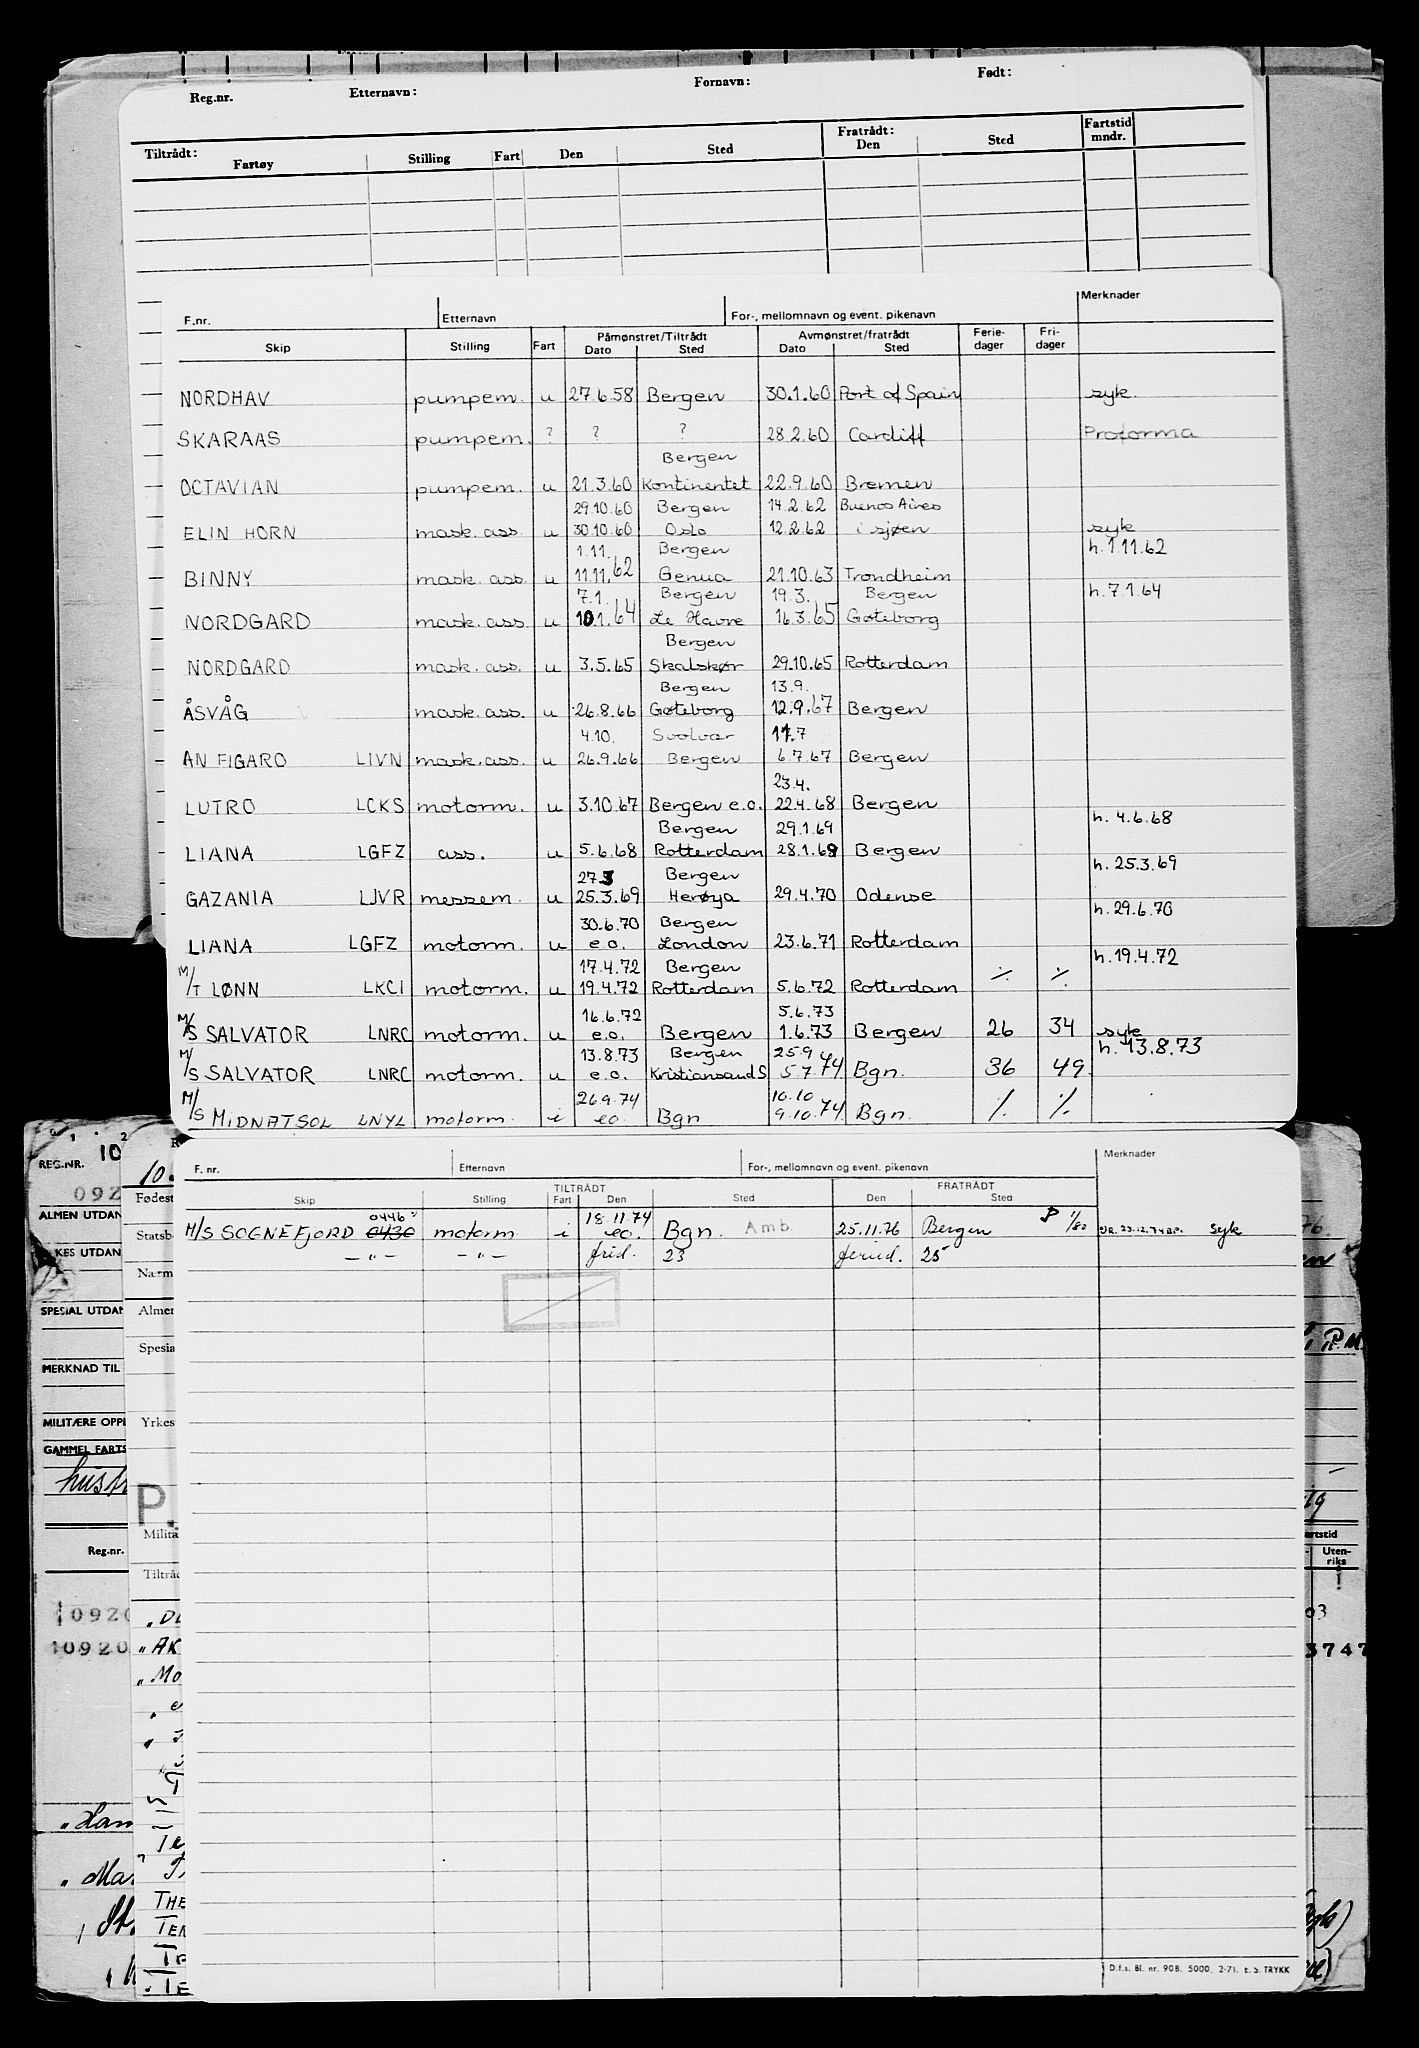 Reg.nr. Etternavn: Fornavn: Født:
Tiltrådt: Fratrådt: Fartstid
Fartøy Stilling Fart Den Sted Den Sted mndr.
F.nr. Etternavn For-, mellomnavn og event. pikenavn Merknader
Skip Stilling Fart Påmønstret/Tiltrådt Avmønstret/fratrådt Ferie- Fri-
Dato Sted Dato Sted dager dager
NORDHAV pumpem. u 27.6.58 Bergen 30.1.60 Port of Spain syk.
SKARAAS pumpem. ? ? ? 28.2.60 Cardiff Proforma
Bergen
OCTAVIAN pumpem. u 21.3.60 Kontinentet 22.9.60 Bremen
29.10.60 Bergen 14.2.62 Buenos Aires
ELIN HORN mask. ass. u 30.10.60 Oslo 12.2.62 i sjøen syk
1.11. Bergen h. 1.11.62
BINNY mask. ass. u 11.11.62 Genua 21.10.63 Trondheim
7.1. Bergen 19.3. Bergen h. 7.1.64
NORDGARD mask. ass. u 10.1.64 Le Havre 16.3.65 Gøteborg
Bergen
NORDGARD mask. ass. u 3.5.65 Skalskør 29.10.65 Rotterdam
Bergen 13.9.
ÅSVÅG mask. ass. u 26.8.66 Gøteborg 12.9.67 Bergen
4.10. Svolvær 11.7
AN FIGARO LIVN mask. ass. u 26.9.66 Bergen 6.7.67 Bergen
23.4.
LUTRO LCKS motorm. u 3.10.67 Bergen e.o. 22.4.68 Bergen
Bergen 29.1.69 h. 4.6.68
LIANA LGFZ ass. u 5.6.68 Rotterdam 28.1.69 Bergen
27.3 Bergen h. 25.3.69
GAZANIA LJVR messem. u 25.3.69 Herøya 29.4.70 Odense
30.6.70 Bergen h. 29.6.70
LIANA LGFZ motorm. u e.o. London 23.6.71 Rotterdam
17.4.72 Bergen h. 19.4.72
M/T LØNN LKCI motorm. u 19.4.72 Rotterdam 5.6.72 Rotterdam ./. ./.
16.6.72 5.6.73
M/S SALVATOR LNRC motorm. u e.o. Bergen 1.6.73 Bergen 26 34 syk
13.8.73 Bergen 25.9 h. 13.8.73
M/S SALVATOR LNRC motorm. u e.o. Kristiansand S 5.7.74 Bgn. 36 49.
26.9.74 10.10
M/S MIDNATSOL LNYL motorm. i eo. Bgn 9.10.74 Bgn. ./. ./.
F. nr. Etternavn For-, mellomnavn og event. pikenavn Merknader
TILTRÅDT FRATRÅDT
Skip Stilling Fart Den Sted Den Sted
0446 18.11.74
M/S SOGNEFJORD 0430 motorm i eo. Bgn. Amb. 25.11.76 Bergen P 1/80 syk
— " — — " — frid. 23 feried. 25
D.f.s. Bl. nr. 90B. 5000. 2-71. E. S. TRYKK
REG.NR. 10
092
ALMEN UTDAN
KES UTDAN
SPESIAL UTDAN
MERKNAD TIL
MILITÆRE OPPL
GAMMEL FARTS
hust
Reg.nr.
1092
10920
Fødest
Statsb
Nærm
Almen
Spesia
Yrkes
P.
Milita
Tiltråd
"AK
"Mo
THE
TEN
P.M.
artstid
Uten-
riks
03
3747